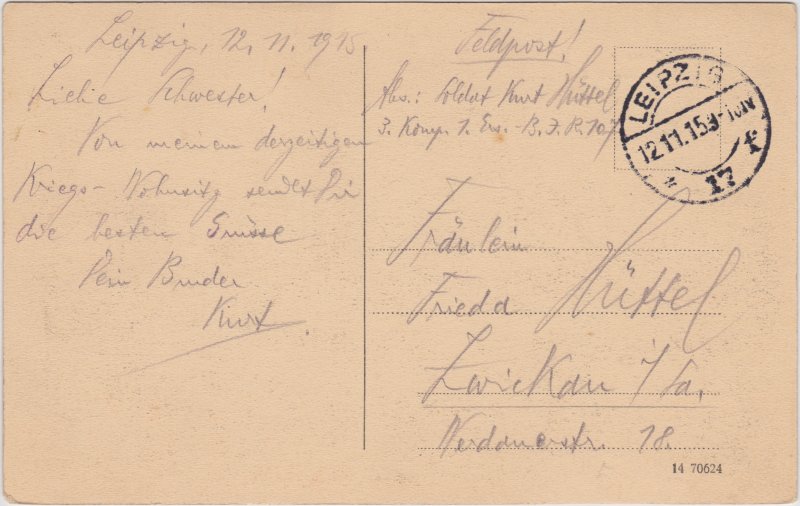 Leipzig, 12. 11. 1915
Liebe Schwester!
Von meinem derzeitigen
Kriegs-Wohnsitz sendet Dir
die besten Grüsse
Dein Bruder
Kurt.
Feldpost!
Abs.: Soldat Kurt Hüttel
3. Komp. 1. Ers.-B. I. R. 107
LEIPZIG
12.11.15.9-10V
* 17 f.
Fräulein
Frieda Hüttel
Zwickau i/Sa.
Werdauerstr. 18.
14 70624